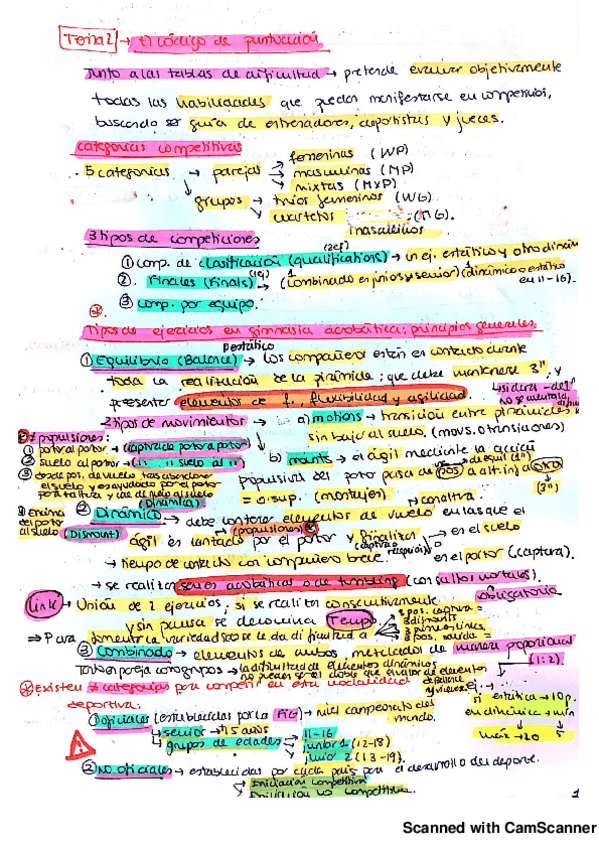 Tema 2 → El código de puntuación
Junto a las tablas de dificultad → pretende evaluar objetivamente
todas las habilidades que puedan manifestarse en competición,
buscando ser guía de entrenadores, deportistas y jueces.
categorías competitivas
5 categorías → parejas → femeninas (WP)
→ masculinas (MP)
→ mixtas (MXP)
grupos → tríos femeninos (WG)
cuartetos (MG).
masculinos
3 tipos de competiciones
① comp. de clasificación (qualifications) (2ej) → un ej. estático y otro dinám
②. Finales (Finals) (1ej) → (1 combinado en junios y senior) (dinámico o estático
en 11-16).
③ comp. por equipo.
Tipos de ejercicios en gimnasia acrobática: principios generales
① Equilibrio (Balance) → los compañeros están en contacto durante
toda la realización de la pirámide; que debe mantenerse 3", y
presentar elementos de f., flexibilidad y agilidad.
2 tipos de movimientos → a) motions → transición entre pirámides
sin bajar al suelo. (movs. o transiciones)
b) mounts → el ágil mediante la acción
propulsiva del portor pasa de pos a alt. inj a otra
(3")
= o sup. (montajes)
≠ propulsiones:
① portor a portor → (captura de portor a portor)
② suelo al portor → (" " suelo al ")
③ desde pos. de vuelo tras abandonar
el suelo y es ayudado por el portor
(Dinámica)
④ Encima
del portor
al suelo (Dismount)
② Dinámico → debe contener elementos de vuelo en las que el
(propulsiones)
ágil es lanzado por el portor y finaliza → en el suelo
en el portor (captura).
→ tiempo de contacto con compañero breve.
→ se realizan series acrobáticas o de tumbling (con saltos mortales).
obligatoria
Link → Unión de 2 ejercicios; si se realiza consecutivamente
y sin pausa se denomina Tempo
⇒ Para fomentar la variedad solo se le da dificultad a
③ Combinado → elementos de ambos, mezclados de manera proporcional
(1:2)
Tanto en pareja como grupos → la dificultad de elementos dinámicos
no puede ser el doble que el valor de elementos
y viceversa
ej:
si estática → 10p.
en dinámica → mín
máx → 20 5
Existen ≠ categorías para competir en esta modalidad
deportiva:
① oficiales (establecidas por la FIG) → nivel campeonato del
mundo.
senior → +15 años
grupos de edades → 11-16
junior 1 (12-18)
junior 2 (13-19).
② No oficiales → establecidas por cada país para el desarrollo del deporte.
Iniciación competitiva
Iniciación no competitiva.
1
Scanned with CamScanner